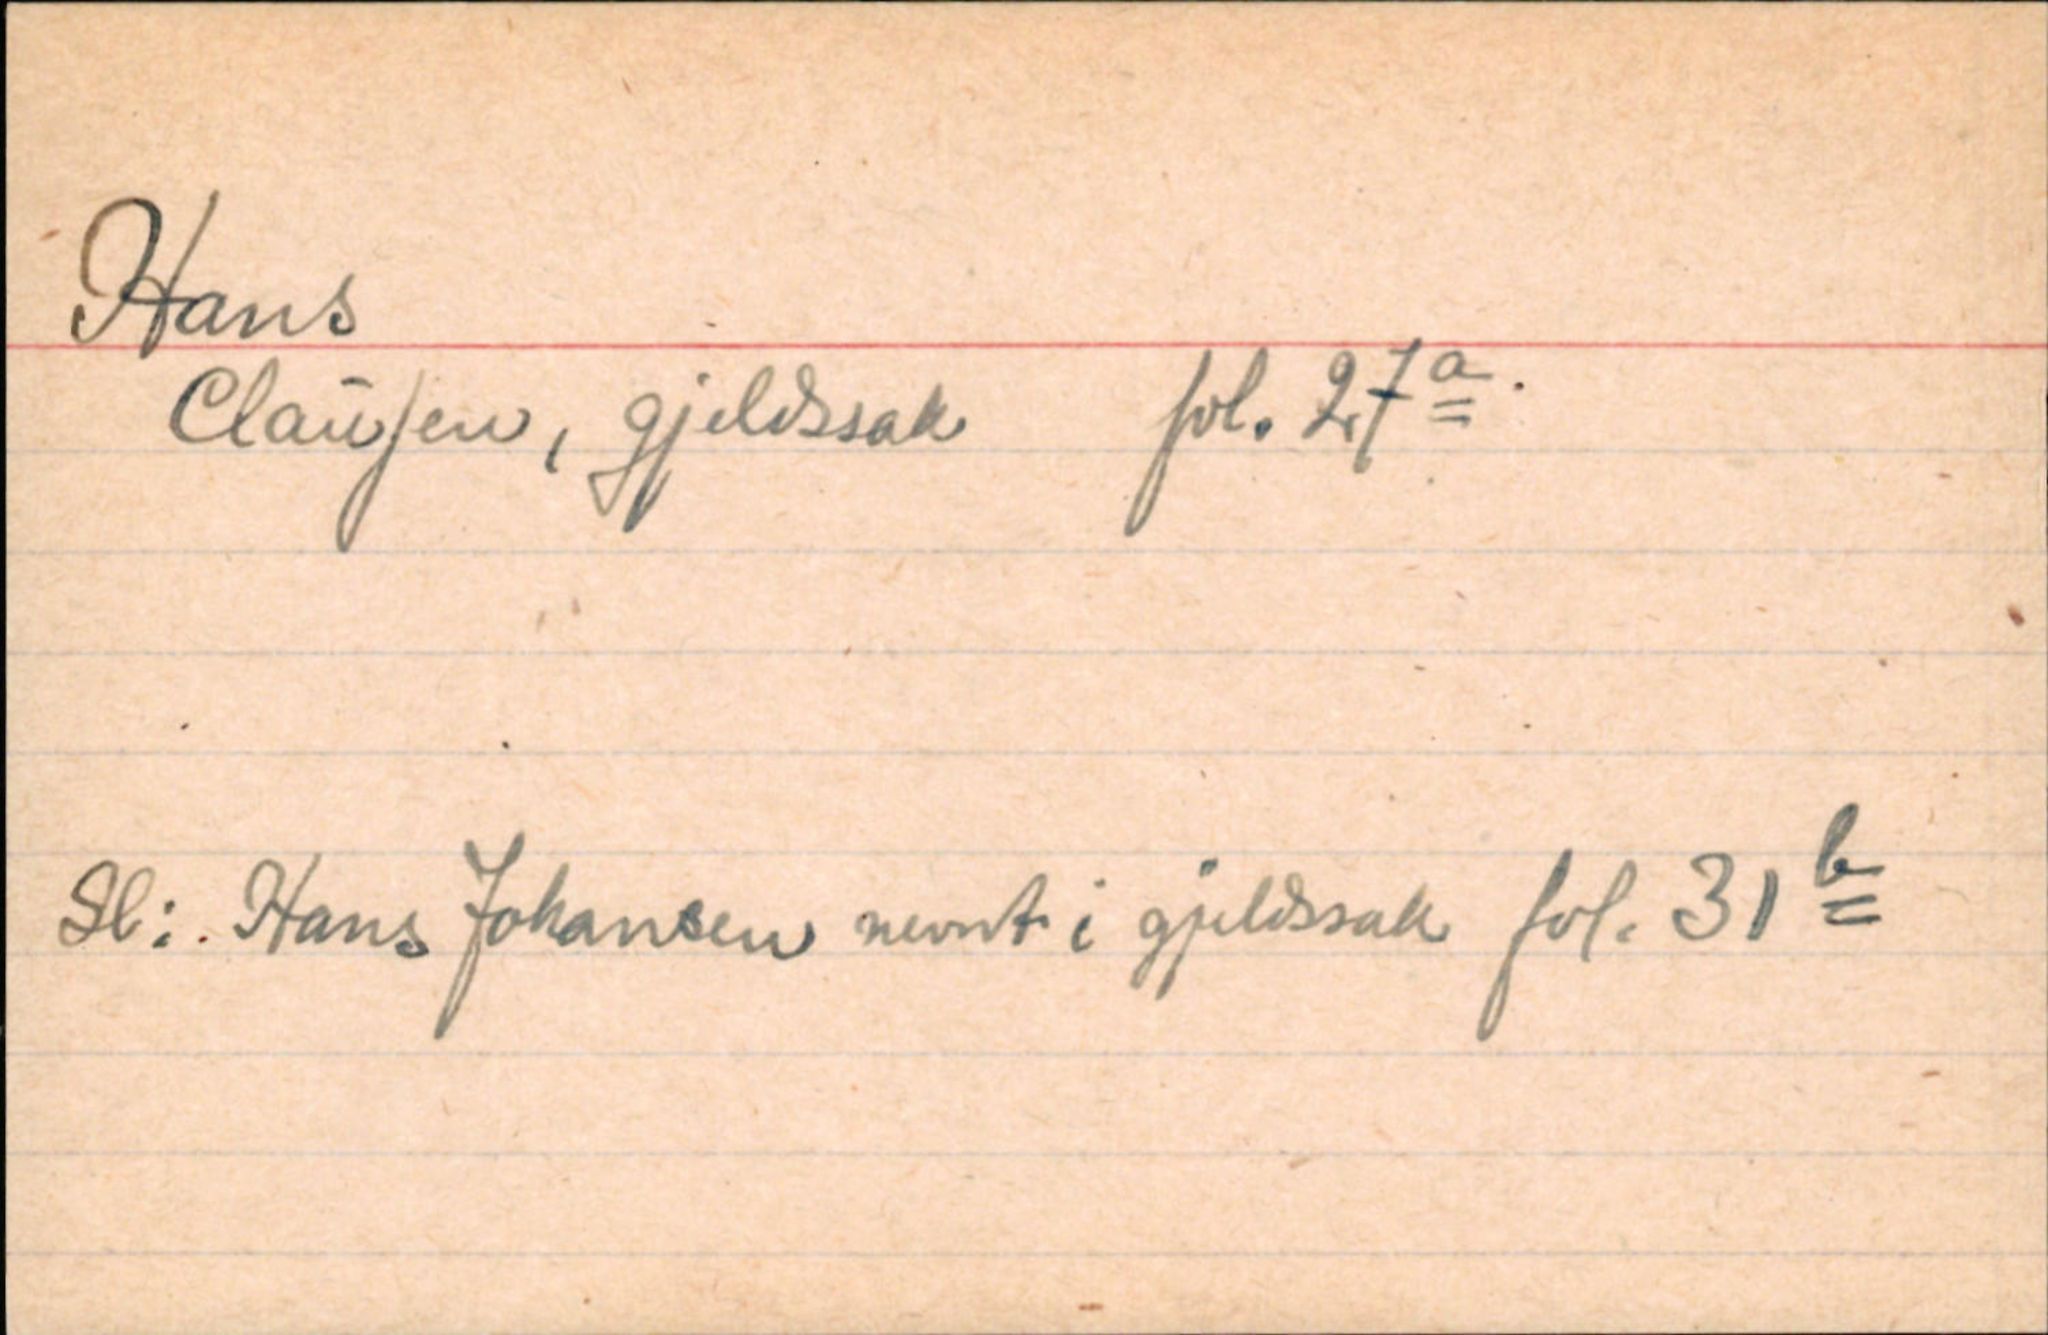 Hans
Claŭsen, gjeldssak fol. 27a.
Sl: Hans Johansen nevnt i gjeldssak fol. 31b